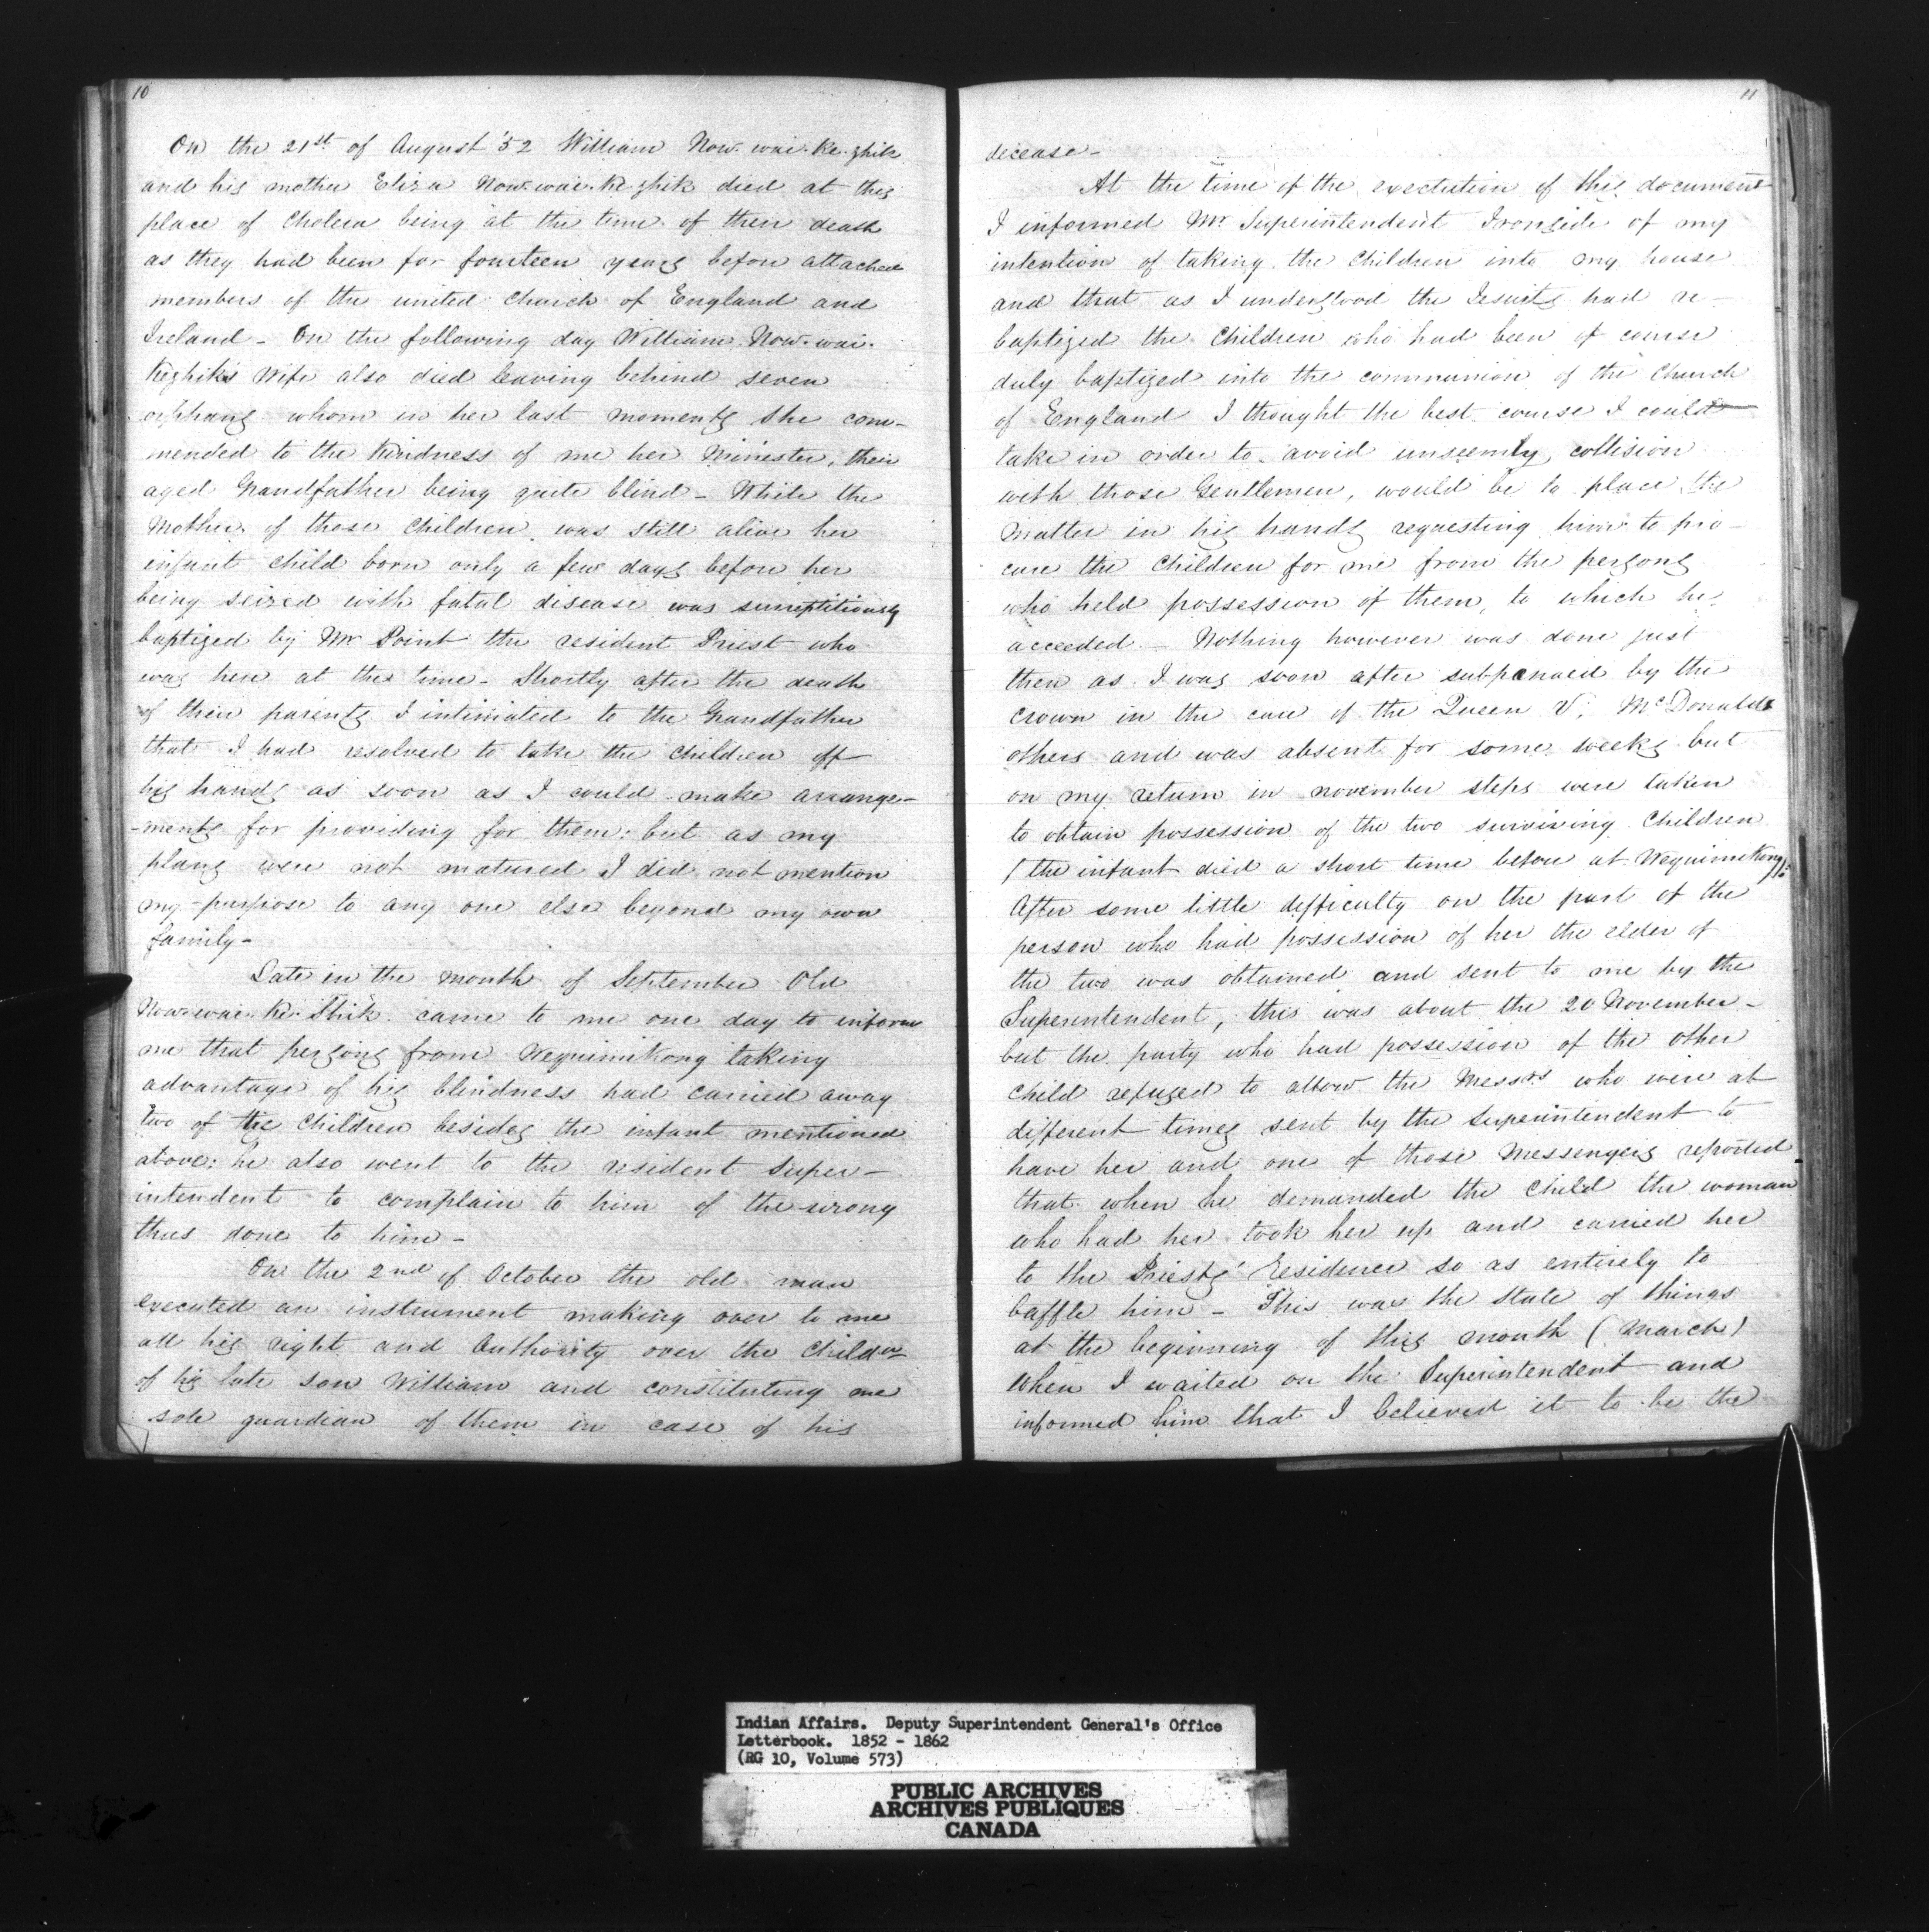 10
On the 21st of August '52 William Now-wai-ke-zhik
and his mother Eliza Now-wai-ke-zhik died at this
place of Cholera being at the time of their death
as they had been for fourteen years before attached
members of the united Church of England and
Ireland - On the following day William Now-wai-
Kezhik's Wife also died leaving behind seven
orphans whom in her last moments she com-
mended to the kindness of me her Minister, their
aged Grandfather being quite blind - While the
Mother of those Children was still alive her
infant child born only a few days before her
being seized with fatal disease was surreptitiously
baptized by Mr Point the resident Priest who
was here at the time - Shortly after the death
of their parents I intimated to the Grandfather
that I had resolved to take the children off
his hands as soon as I could make arrange-
-ments for providing for them: but as my
plans were not matured I did not mention
my purpose to any one else beyond my own
family -
Late in the month of September Old
Now-wai-ke-Shik came to me one day to inform
me that persons from Wequimikong taking
advantage of his blindness had carried away
two of the Children besides the infant mentioned
above: he also went to the resident Super-
intendent to complain to him of the wrong
thus done to him -
On the 2nd of October the old man
executed an instrument making over to me
all his right and Authority over the Childn
of his late son William and constituting me
sole guardian of them in case of his
11
decease -
At the time of the exectution of this document
I informed Mr Superintendent Ironside of my
intention of taking the Children into my house
and that as I understood the Jesuits had re-
baptized the Children who had been of course
duly baptized into the communion of the Church
of England I thought the best course I could
take in order to avoid unseemly collision
with those Gentlemen, would be to place the
Matter in his hands requesting him to pro-
cure the Children for me from the persons
who held possession of them, to which he
acceeded - Nothing however was done just
then as I was soon after subpænaed by the
Crown in the case of the Queen V. McDonald &
others and was absent for some weeks but
on my return in november steps were taken
to obtain possession of the two surviving Children
(the infant died a short time before at Wequimikong):
After some little difficulty on the part of the
person who had possession of her the elder of
the two was obtained and sent to me by the
Superintendent, this was about the 20 November -
but the party who had possession of the other
child refused to allow the Messrs who were at
different times sent by the Superintendent to
have her and one of those Messengers reported
that when he demanded the Child the woman
who had her took her up and carried her
to the Priests' Residence so as entirely to
baffle him - This was the state of things
at the beginning of this month (March)
when I waited on the Superintendent and
informed him that I believed it to be the
Indian Affairs. Deputy Superintendent General's Office
Letterbook. 1852 - 1862
(RG 10, Volume 573)
PUBLIC ARCHIVES
ARCHIVES PUBLIQUES
CANADA